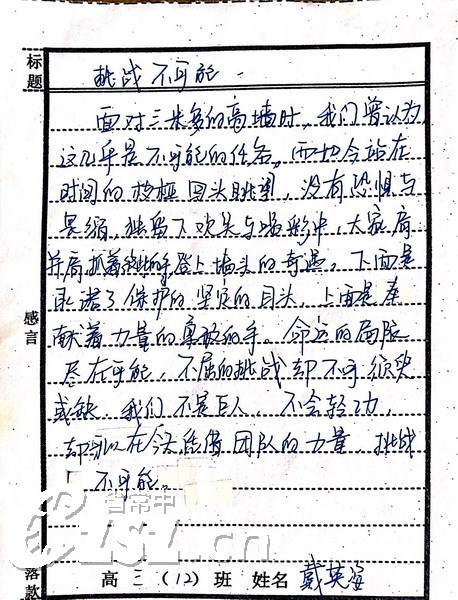 标题
挑战不可能
面对三米多的高墙时，我们曾认为
这几乎是不可能的任务。而如今站在
时间的枝桠回头眺望，没有恐惧与
畏缩，独留下欢笑与喝彩中，大家肩
并肩，抓着手登上墙头的奇迹。下面是
承诺了保护的坚定的目光，上面是奉
献着力量的勇敢的手。命运的局限
尽在可能，不屈的挑战却不可须臾
或缺。我们不是巨人，不会轻功，
却可以在今天凭借团队的力量，挑战
“不可能。
感言
落款
高三（12）班 姓名 戴英姿